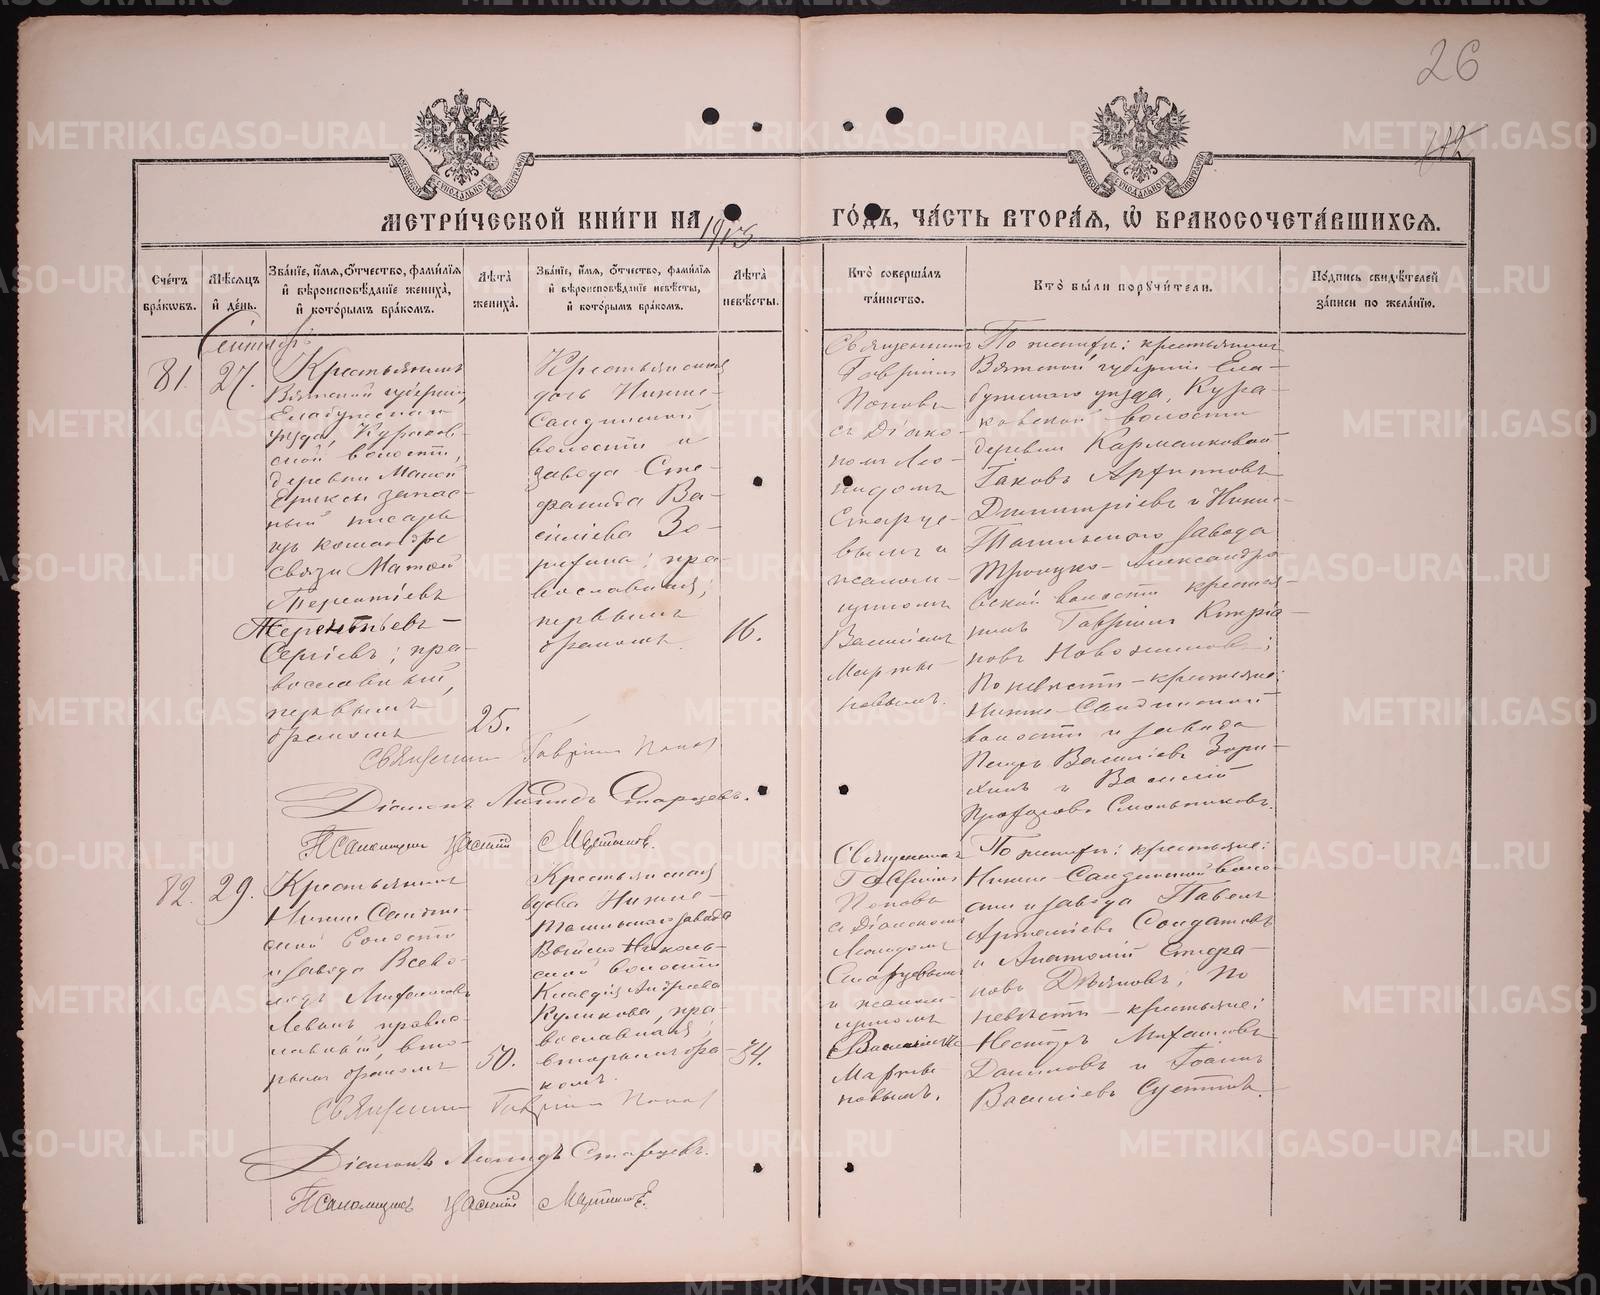 26
112
МЕТРИ́ЧЕСКОЙ КНИ́ГИ НА 1918 ГО́ДЪ, ЧА́СТЬ ВТОРА́Я, Ѡ҆ БРАКОСОЧЕТА́ВШИХСЯ.
Сче́тъ бра́ковъ.
Мѣ́сяцъ и҆ де́нь.
Зва́нїе, и҆́мя, о҆́тчество, фами́лїя
и҆ вѣроисповѣ́данїе жениха̀,
и҆ кото́рымъ бра́комъ.
Лѣта̀ жениха̀.
Зва́нїе, и҆́мя, о҆́тчество, фами́лїя
и҆ вѣроисповѣ́данїе невѣ́сты,
и҆ кото́рымъ бра́комъ.
Лѣта̀ невѣ́сты.
Кто̀ соверша́лъ та́инство.
Кто̀ бы́ли поручи́тели.
По́дпись свидѣ́телей за́писи по жела́нїю.
Сентябрь
81.
27.
Крестьянинъ
Вятской губерніи,
Елабужскаго
уѣзда, Кураков-
ской волости,
деревни Малой
Ерыксы запас-
ный писарь
команды
связи Матвѣй
Терентіевъ
Терентьевъ —
Сергѣевъ; пра-
вославный,
первымъ
бракомъ
25.
Крестьянская
дочь Нижне-
Салдинской
волости и
завода Сте-
фанида Ва-
сильева Зо-
рихина; пра-
вославная;
первымъ
бракомъ.
16.
Священникъ
Гавріилъ
Поповъ
съ Діако-
номъ Лео-
нидомъ
Старце-
вымъ и
псалом-
щикомъ
Василіемъ
Марты-
новымъ.
По женихѣ: крестьянинъ
Вятской губерніи Ела-
бужскаго уѣзда, Кура-
ковской волости
деревни
Іаковъ
Димитріевъ и Нижне-
Тагильскаго завода
Троицко-Александро
вской волости крестья-
нинъ Гавріилъ Кипріа-
новъ
По невѣстѣ — крестьяне:
Нижне-Салдинской
волости и завода
Петръ Василіевъ Зори-
хинъ и Василій
Смольниковъ.
Священникъ Гавріилъ Поповъ
Діаконъ Леонидъ Старцевъ.
Псаломщикъ Василій Мартыновъ.
82.
29.
Крестьянинъ
Нижне Салдин-
ской волости
и завода Всево-
лодъ
православ-
лавный, вто-
рымъ бракомъ
50.
Крестьянская
вдова Нижне-
Тагильскаго завода
Выйско-Николь-
ской волости
Клавдія Андреева
Куликова, пра-
вославная;
вторымъ бра-
комъ.
34.
Священникъ
Гавріилъ
Поповъ
съ Діакономъ
Леонидомъ
Старцевымъ
и псалом-
щикомъ
Василіемъ
Марты-
новымъ.
По женихѣ: крестьяне:
Нижне-Салдинской воло-
сти и завода Павелъ
Артеміевъ Солдатовъ
и Анатолій Стефа-
новъ По
невѣстѣ — крестьяне:
Несторъ Михаиловъ
Даниловъ и Іоаннъ
Василіевъ
Священникъ Гавріилъ Поповъ
Діаконъ Леонидъ Старцевъ.
Псаломщикъ Василій Мартыновъ.
METRIKI.GASO-URAL.RU